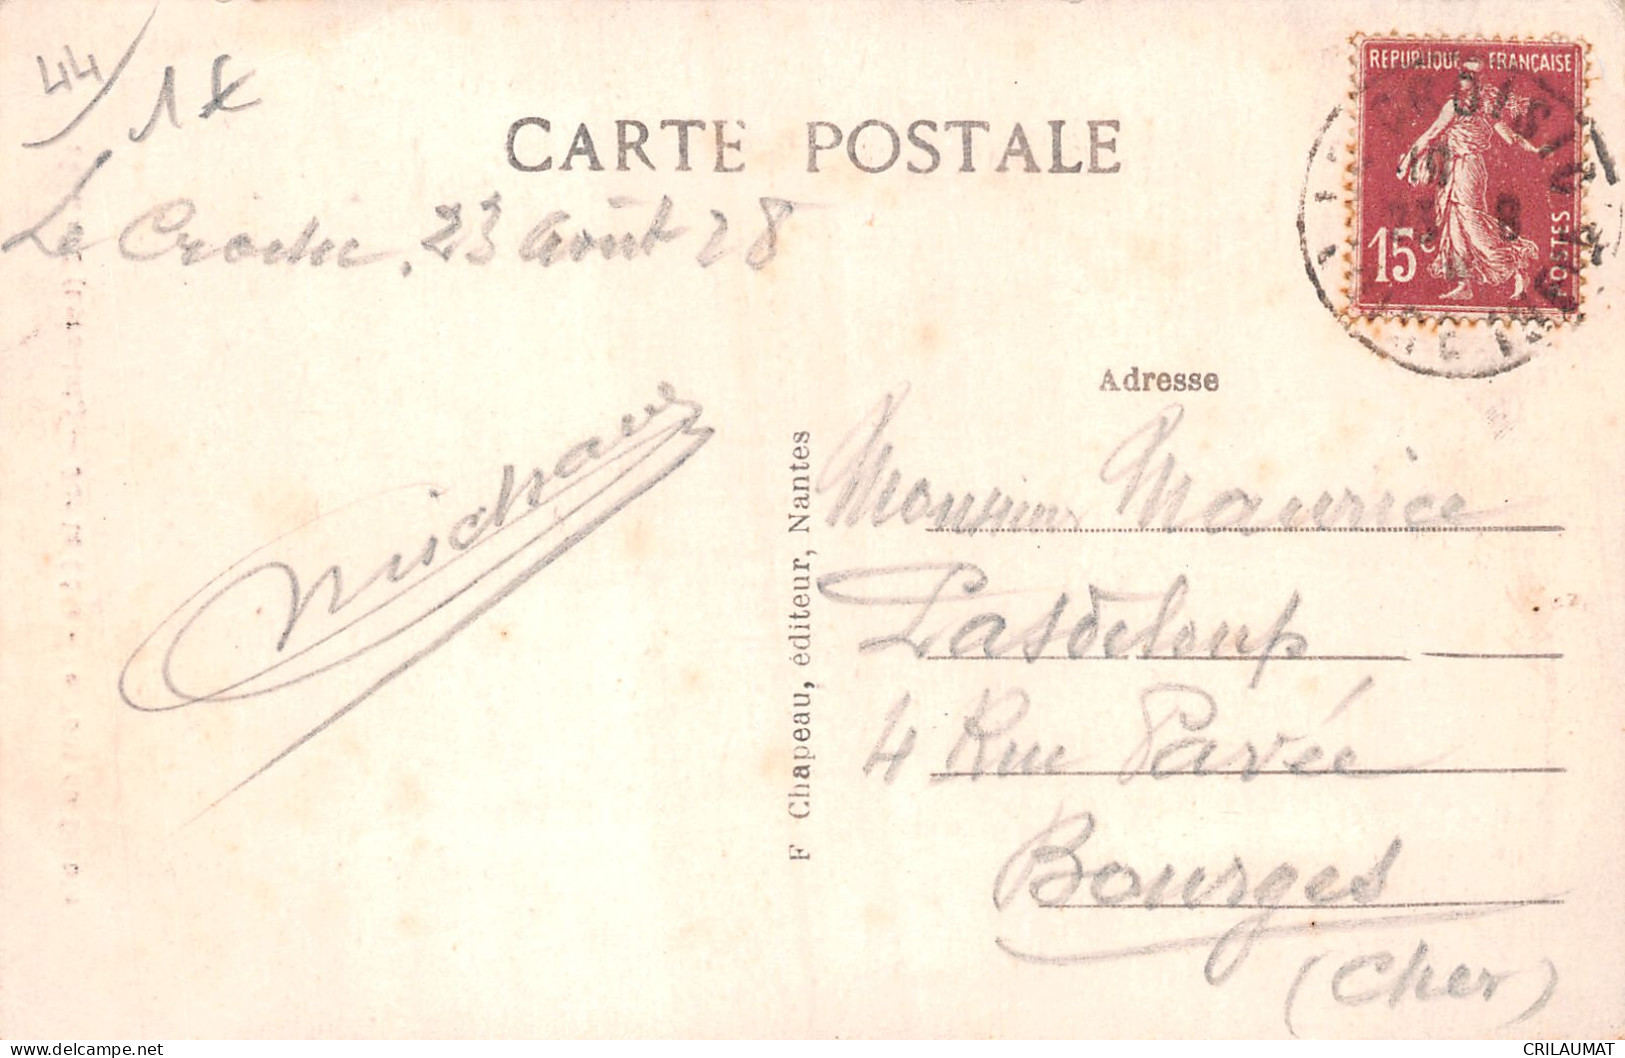 44
1€
CARTE POSTALE
Le Croisic, 23 Août 28
REPUBLIQUE FRANÇAISE
15c
POSTES
Adresse
Michaud
F Chapeau, éditeur, Nantes
Monsieur Maurice
Pasdeloup
4 Rue Pavée
Bourges
(Cher)
CRILAUMAT